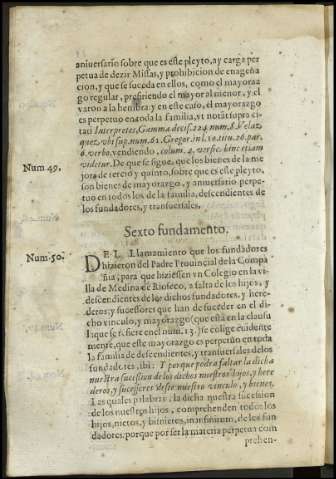 aniversario sobre que es este pleyto, ay carga per
petua de dezir Missas, y prohibicion de enagena
cion, y que se suceda en ellos, como el mayoraz
go regular, prefiriendo el mayor al menor, y el
varon a la hembra: y en este caso, el mayorazgo
es perpetuo en toda la familia, vt notāt supra ci-
tati Interpretes, Gamma decis. 224. num. 8. Velaz
quez, vbi sup. num. 62. Gregor. in l. 10. titu. 26. par.
6. verbo, vendiendo, colum. 4. versic. hinc etiam
videtur. De que se sigue, que los bienes de la me
Num 49.
jora de tercio y quinto, sobre que es este pleyto,
son bienes de mayorazgo, y aniversario perpe-
tuo en todos los de la familia, descendientes de
los fundadores, y transuersales.
Sexto fundamento.
Num. 50.
DEL Llamamiento que los fundadores
hizieron del Padre Prouincial de la Compa
ñia, para que hiziessen vn Colegio en la vi
lla de Medina de Rioseco, a falta de los hijos, y
descendientes de los dichos fundadores, y here-
deros, y sucessores que han de suceder en el di-
cho vinculo, y mayorazgo (que està en la clausu
la que se refiere en el num. 13.) se colige euidente
mente, que este mayorazgo es perpetuo en toda
la familia de descendientes, y transuersales de los
fundadores, ibi: Y porque podra faltar la dicha
nuestra sucession de los dichos nuestros hijos, y here
deros, y sucessores deste nuestro vinculo, y bienes,
Las quales palabras, la dicha nuestra sucession
de los nuestros hijos, comprehenden todos los
hijos, nietos, y bisnietos, in infinitum, de los fun
dadores: porque por ser la materia perpetua com
prehen-